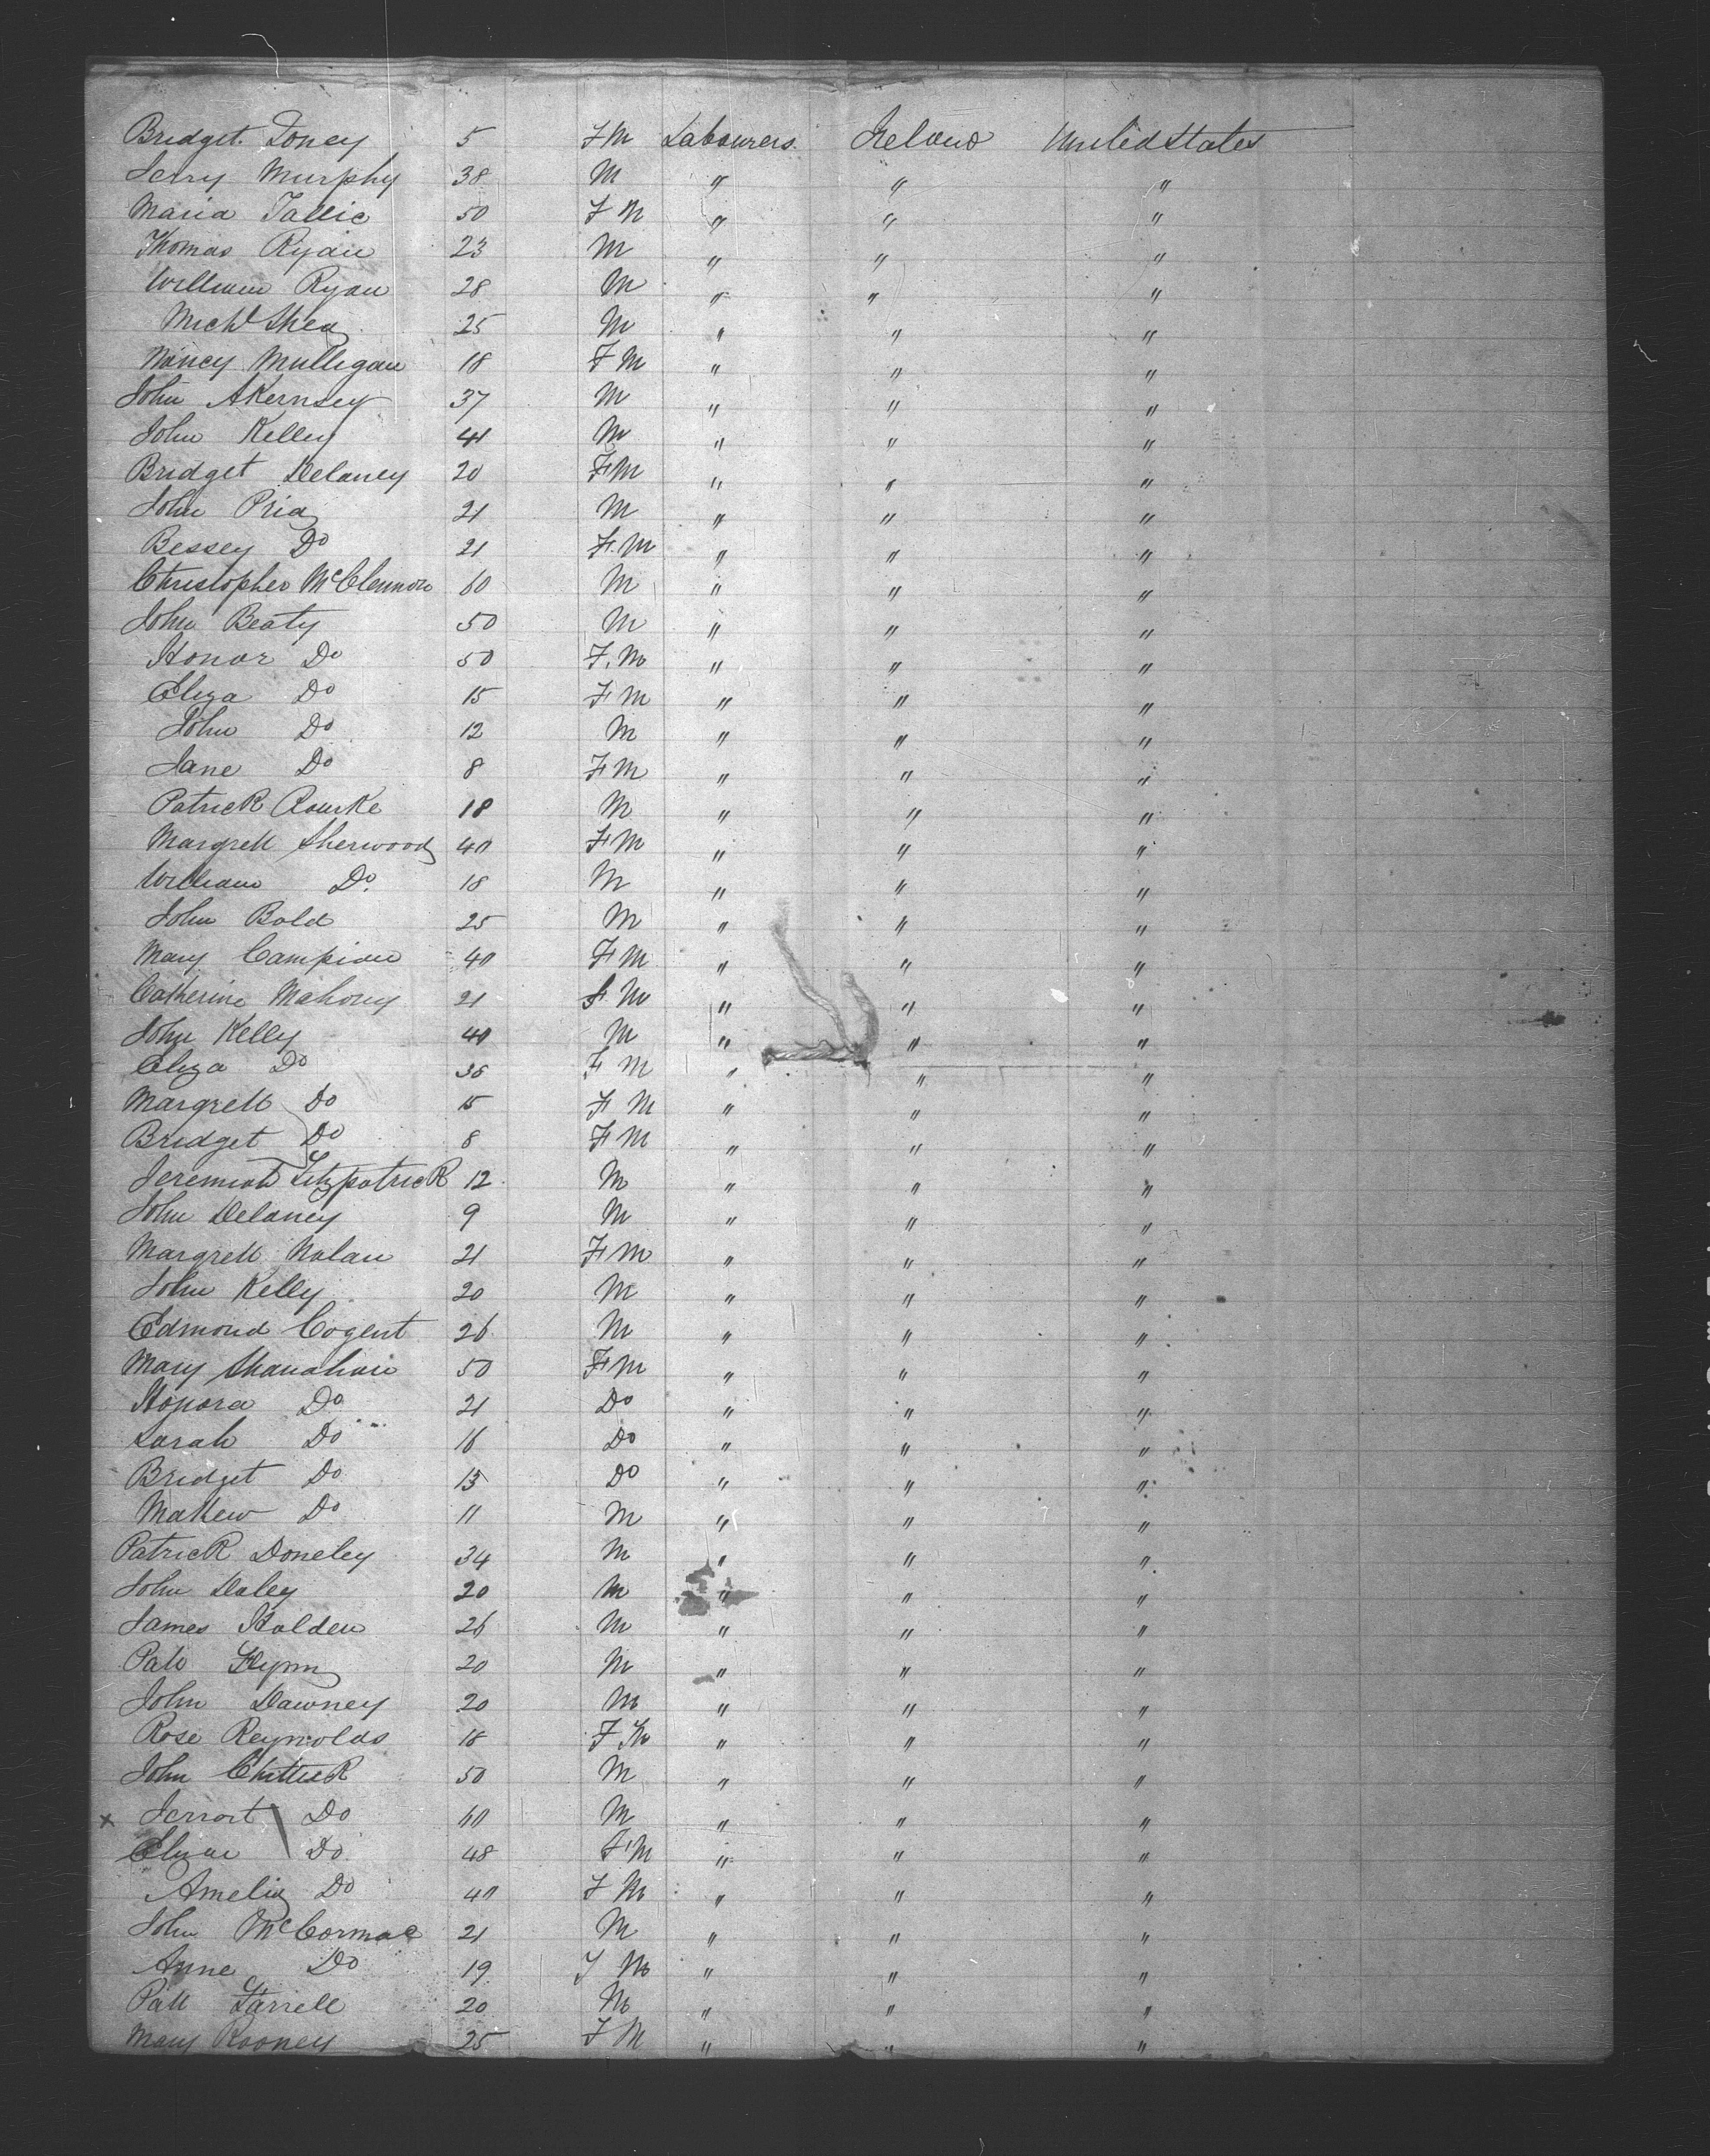 Bridget Toney 5 FM Labourers Ireland United States
Jerry Murphy 38 M " " "
Maria Tallic 50 FM " " "
Thomas Ryan 23 M " " "
William Ryan 28 M " " "
Michl Shea 25 M " " "
Nancy Mulligan 18 FM " " "
John AKernsey 37 M " " "
John Kelley 41 M " " "
Bridget Delaney 20 FM " " "
John Pria 21 M " " "
Bessey Do 21 F.M " " "
Christopher McClennon 60 M " " "
John Beaty 50 M " " "
Honor Do 50 F.M " " "
Eliza Do 15 FM " " "
John Do 12 M " " "
Jane Do 8 FM " " "
Patrick Rourke 18 M " " "
Margrett Sherwood 40 FM " " "
William Do. 18 M " " "
John Bold 25 M " " "
Mary Campion 40 FM " " "
Catherine Mahony 21 FM " " "
John Kelly 40 M " " "
Eliza Do 38 FM " " "
Margrett Do 15 FM " " "
Bridget Do 8 FM " " "
Jeremiah Fitzpatrick 12 M " " "
John Delaney 9 M " " "
Margrett Nolan 21 FM " " "
John Kelly 20 M " " "
Edmond Cogent 26 M " " "
Mary Shanahan 50 FM " " "
Honora Do 21 Do " " "
Sarah Do 16 Do " " "
Bridget Do 13 Do " " "
Mattew Do 11 M " " "
Patrick Doneley 34 M " " "
John Daley 20 M " " "
James Holden 26 M " " "
Patt Flynn 20 M " " "
John Dawney 20 M " " "
Rose Reynolds 18 FM " " "
John Chittick 50 M " " "
x Do 60 M " " "
Do 48 FM " " "
Amelia Do 40 FM " " "
John McCormac 21 M " " "
Anne Do 19 FM " " "
Patt Farrell 20 M " " "
Mary Rooney 25 FM " " "